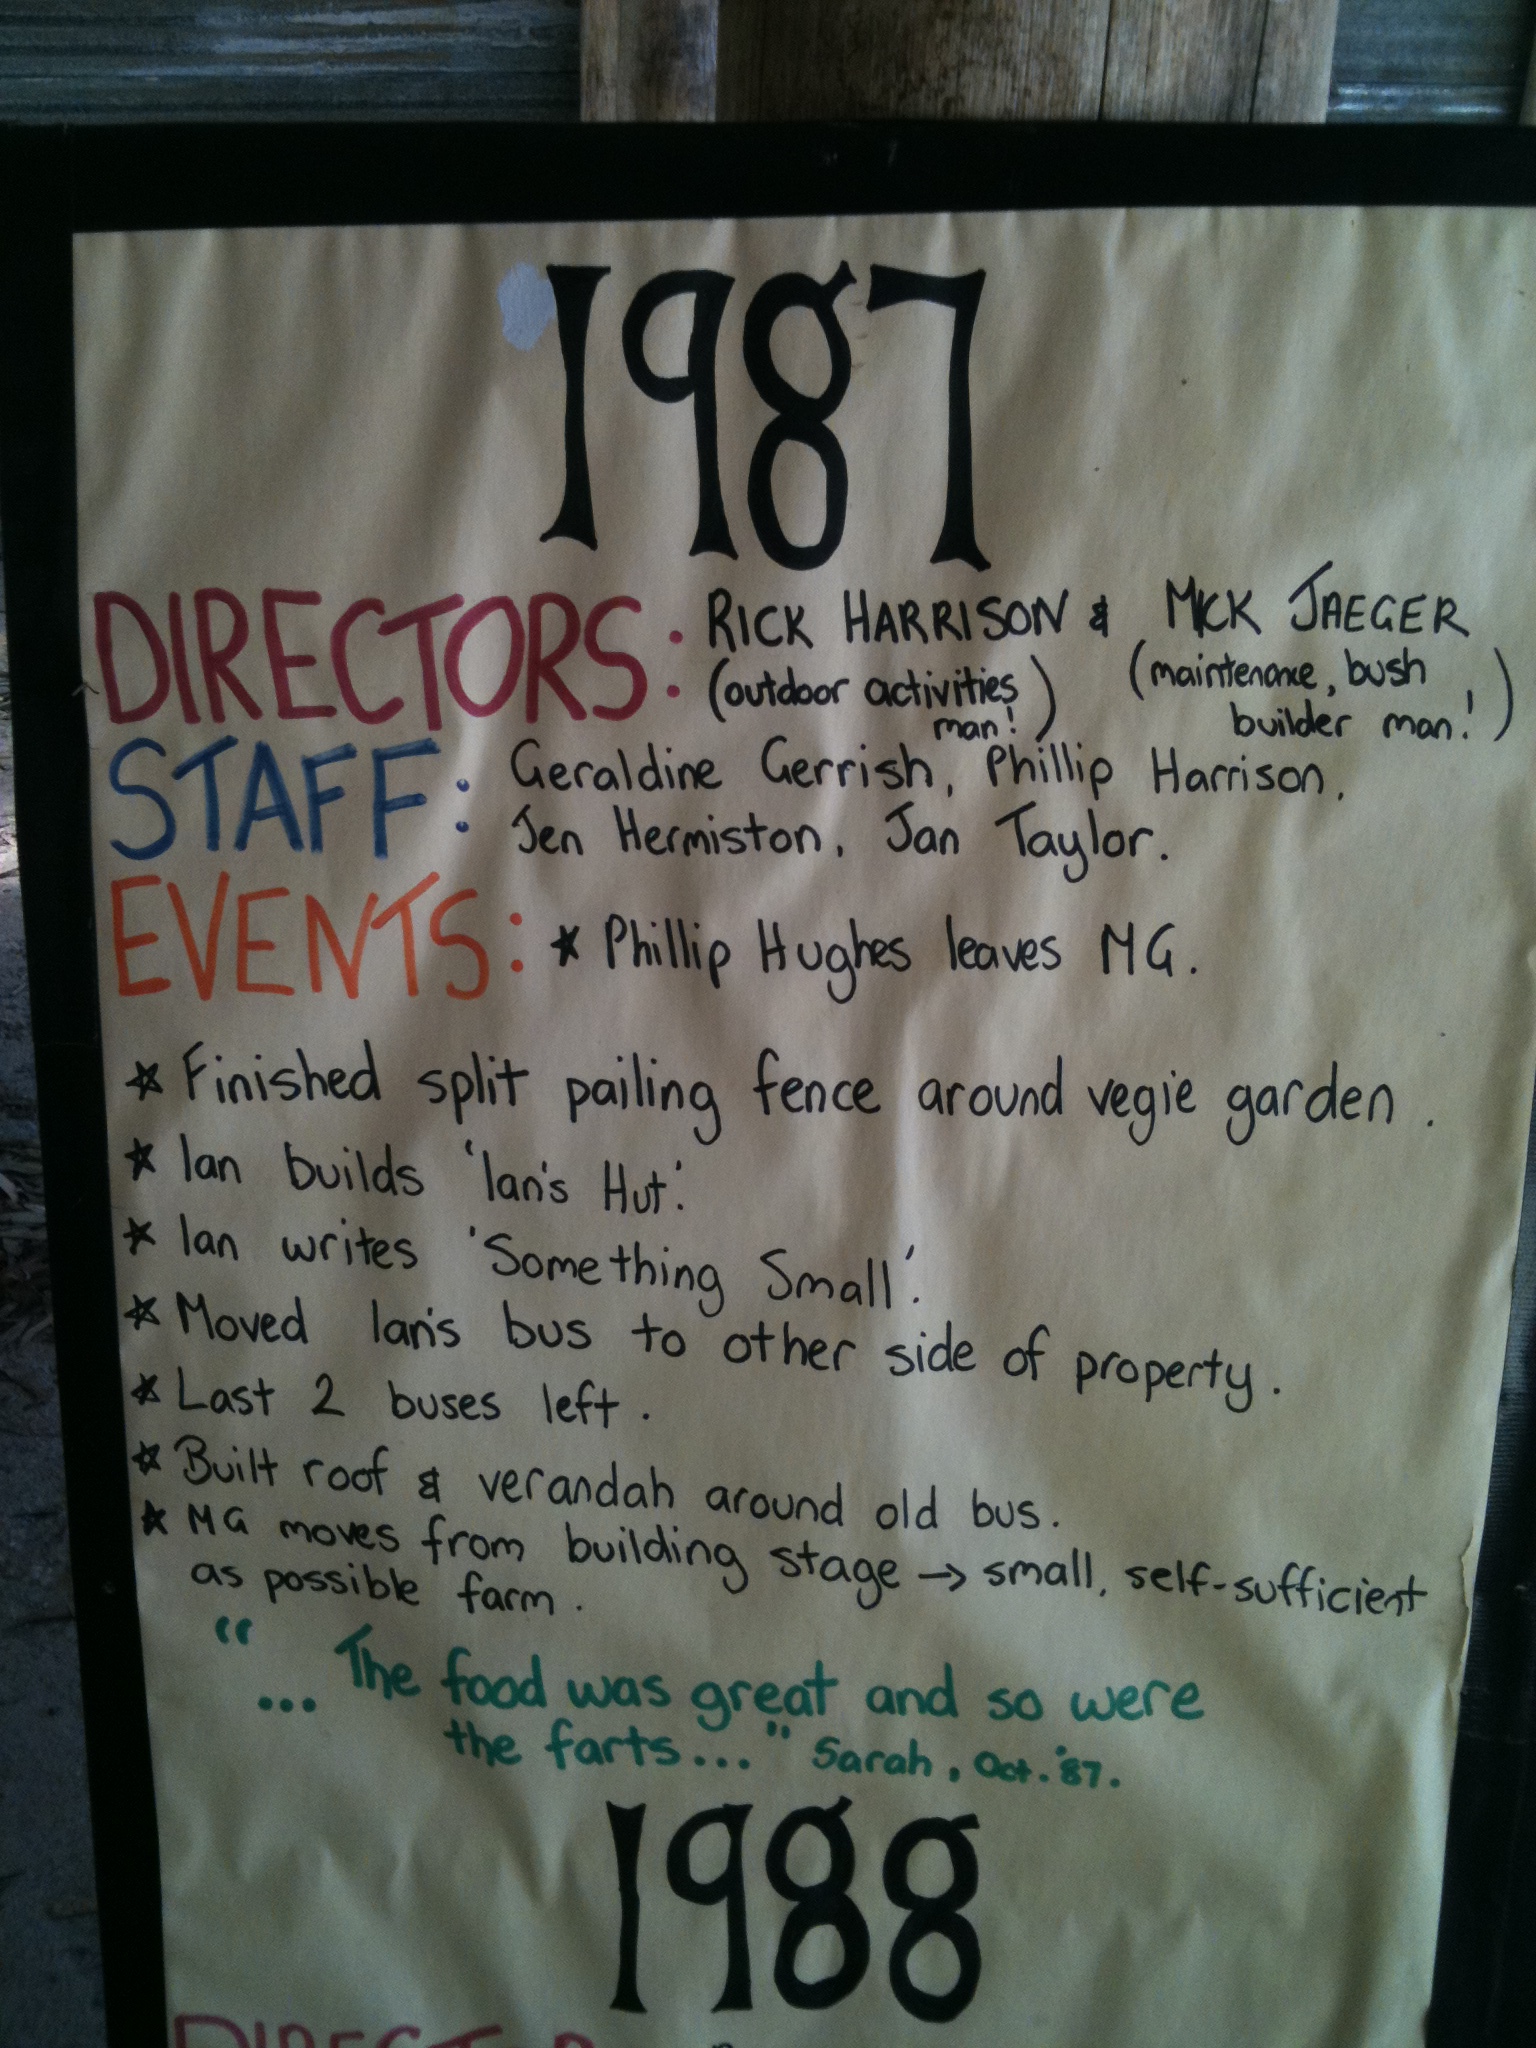 1987
DIRECTORS: RICK HARRISON & MICK JAEGER
(outdoor activities man!) (maintenance, bush builder man!)
STAFF: Geraldine Gerrish, Phillip Harrison,
Jen Hermiston, Jan Taylor.
EVENTS: * Phillip Hughes leaves MG.
* Finished split pailing fence around vegie garden.
* Ian builds 'Ian's Hut'.
* Ian writes 'Something Small'.
* Moved Ian's bus to other side of property.
* Last 2 buses left.
* Built roof & verandah around old bus.
* MG moves from building stage → small, self-sufficient
as possible farm.
"... The food was great and so were
the farts..." Sarah, Oct. '87.
1988
DIRECTOR